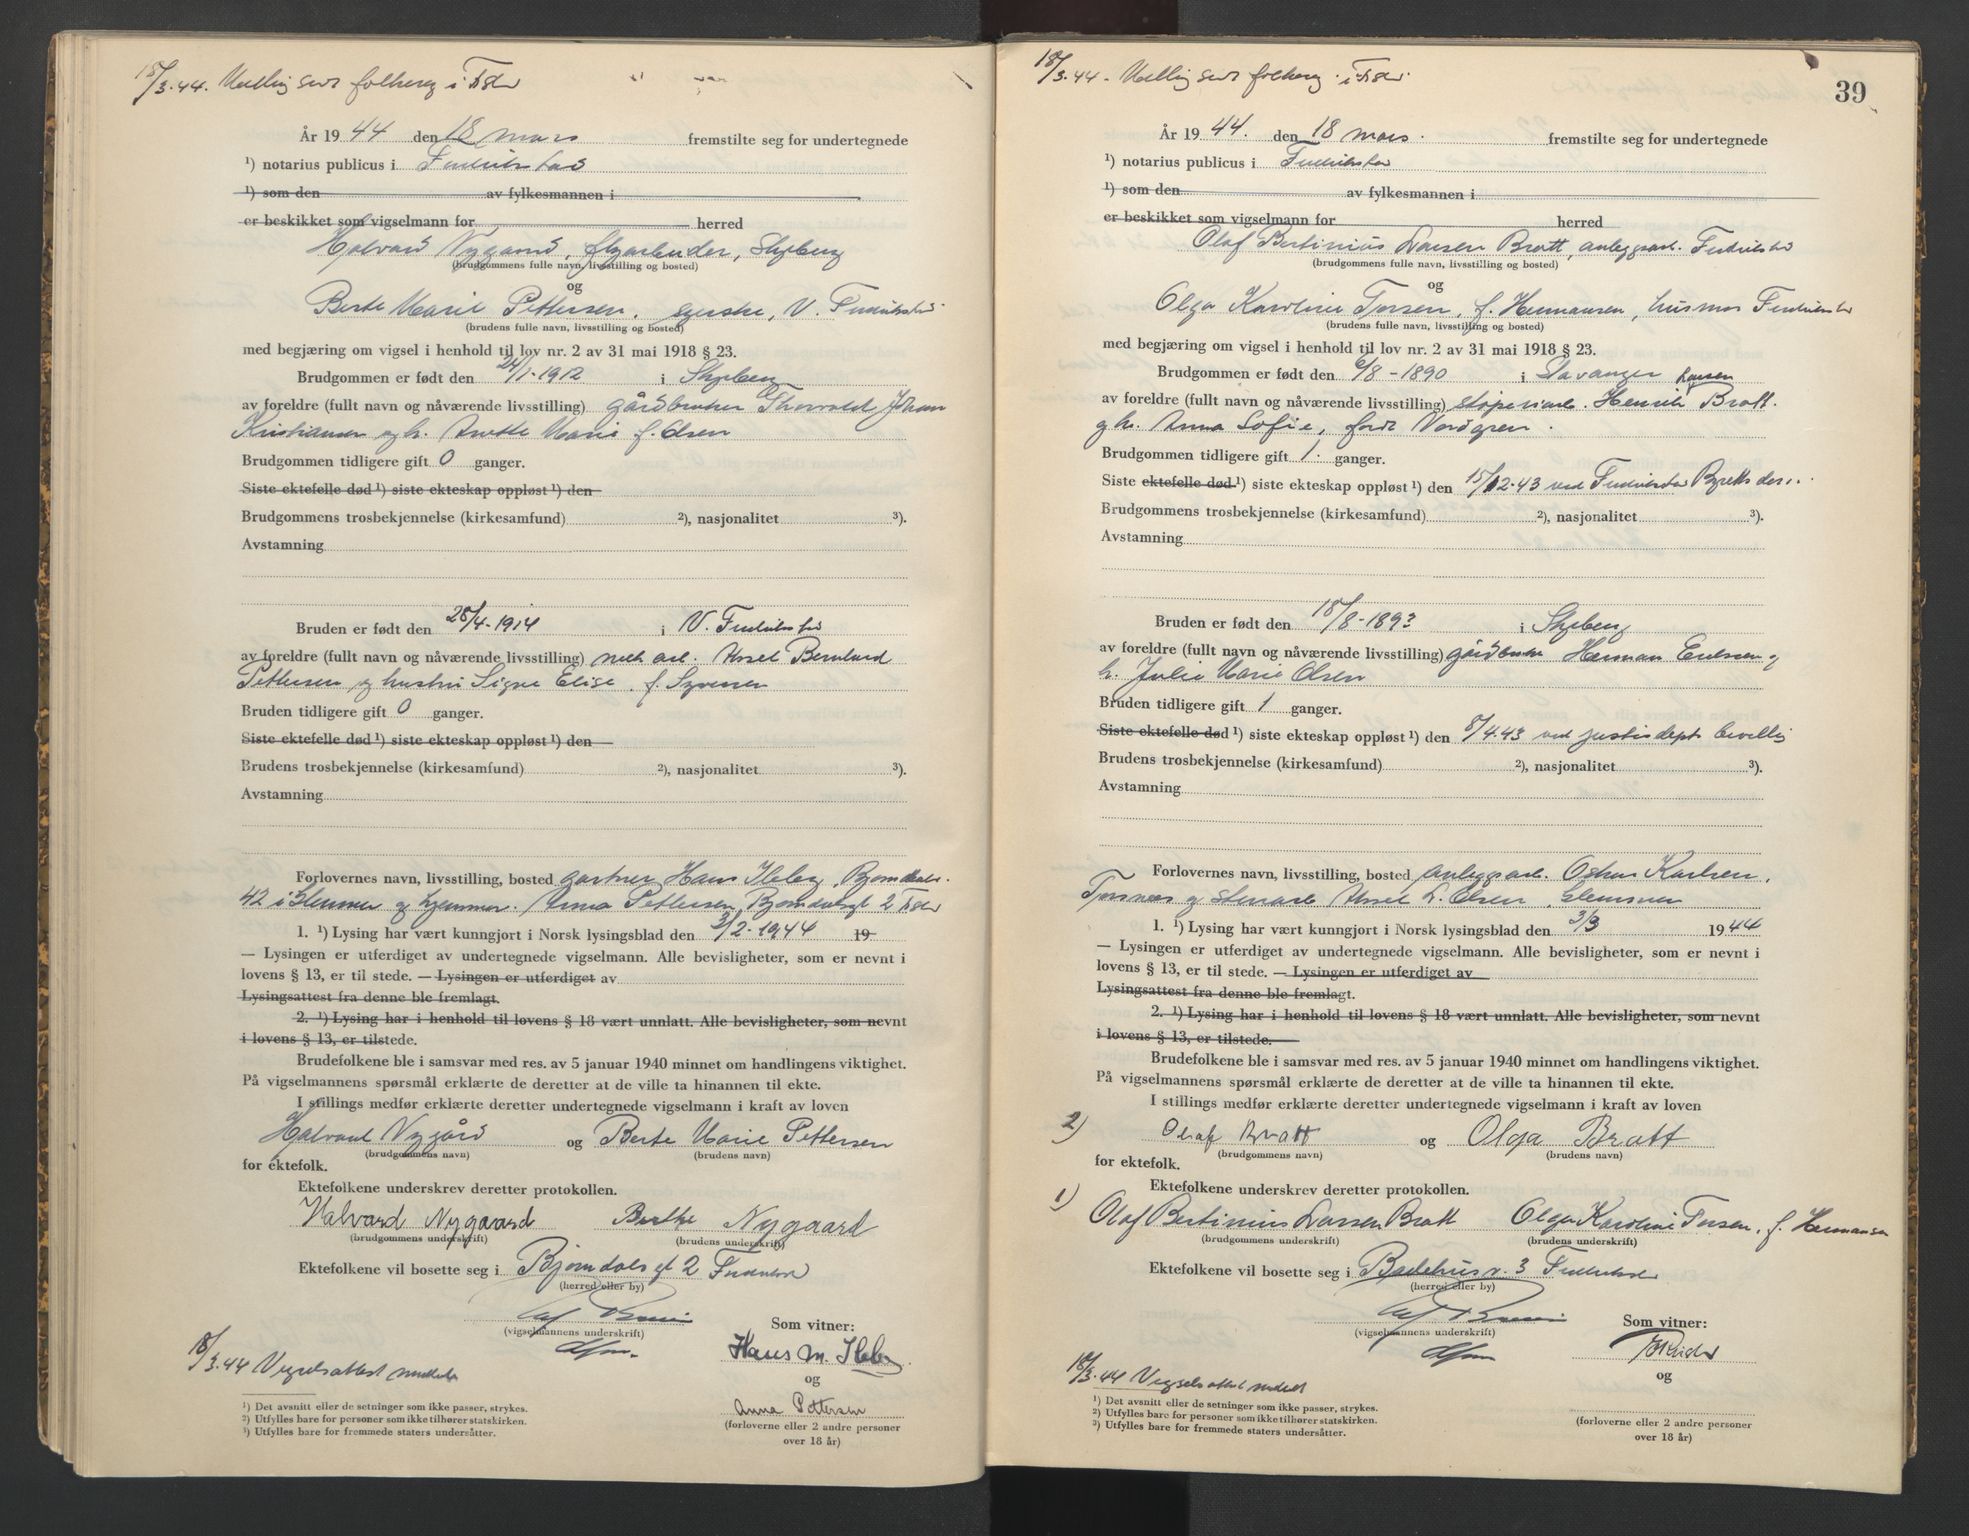 18/3.44. Melding sendt folkereg i F.stad
År 1944 den 18 mars fremstilte seg for undertegnede
¹) notarius publicus i Fredrikstad
¹) som den av fylkesmannen i
er beskikket som vigselmann for herred
Halvard Nygaard, arbeider, Skjeberg
(brudgommens fulle navn, livsstilling og bosted)
og
Berte Marie Pettersen, syerske, V. Fredrikstad
(brudens fulle navn, livsstilling og bosted)
med begjæring om vigsel i henhold til lov nr. 2 av 31 mai 1918 § 23.
Brudgommen er født den 24/1-1912 i Skjeberg
av foreldre (fullt navn og nåværende livsstilling) gårdbruker Thorvald Johan
Kristiansen og h. Anette Marie f. Olsen
Brudgommen tidligere gift 0 ganger.
Siste ektefelle død ¹) siste ekteskap oppløst ¹) den
Brudgommens trosbekjennelse (kirkesamfund) ²), nasjonalitet ³).
Avstamning
Bruden er født den 28/4-1914 i V. Fredrikstad
av foreldre (fullt navn og nåværende livsstilling) mek. arb. Aksel Bernhard
Pettersen og hustru Signe Elise f. Syversen
Bruden tidligere gift 0 ganger.
Siste ektefelle død ¹) siste ekteskap oppløst ¹) den
Brudens trosbekjennelse (kirkesamfund) ²), nasjonalitet ³).
Avstamning
Forlovernes navn, livsstilling, bosted gartner Hans Ileby, Bjørndals.
42 i Glemmen og hjemmev. Anna Pettersen, Bjørndalsgt 2 F.stad
1. ¹) Lysing har vært kunngjort i Norsk lysingsblad den 3/2-1944 19
— Lysingen er utferdiget av undertegnede vigselmann. Alle bevisligheter, som er nevnt i
lovens § 13, er til stede. — Lysingen er utferdiget av
Lysingsattest fra denne ble fremlagt.
2. ¹) Lysing har i henhold til lovens § 18 vært unnlatt. Alle bevisligheter, som nevnt
i lovens § 13, er tilstede.
Brudefolkene ble i samsvar med res. av 5 januar 1940 minnet om handlingens viktighet.
På vigselmannens spørsmål erklærte de deretter at de ville ta hinannen til ekte.
I stillings medfør erklærte deretter undertegnede vigselmann i kraft av loven
Halvard Nygård og Berte Marie Pettersen
(brudgommens navn) (brudens navn)
for ektefolk.
Ektefolkene underskrev deretter protokollen.
Halvard Nygaard Berthe Nygaard
(brudgommens underskrift) (brudens underskrift)
Ektefolkene vil bosette seg i Bjørndalsgt 2 Fredrikstad
(herred eller by)
(vigselmannens underskrift)
Som vitner:
Hans M. Ileby
og
Anna Pettersen
(forloverne eller 2 andre personer
over 18 år)
18/3.44 Vigselsattest meddelt
¹) Det avsnitt eller de setninger som ikke passer, strykes.
²) Utfylles bare for personer som ikke tilhører statskirken.
³) Utfylles bare for fremmede staters undersåtter.
39
18/3.44 - Melding sendt folkereg. i F.stad.
År 1944. den 18 mars. fremstilte seg for undertegnede
¹) notarius publicus i Fredrikstad
¹) som den av fylkesmannen i
er beskikket som vigselmann for herred
Olaf Bertinius Larsen Bratt, anleggsarb. Fredrikstad
(brudgommens fulle navn, livsstilling og bosted)
og
Olga Karoline Torsen, f. Hermansen, husmor Fredrikstad
(brudens fulle navn, livsstilling og bosted)
med begjæring om vigsel i henhold til lov nr. 2 av 31 mai 1918 § 23.
Brudgommen er født den 6/8-1890 i Stavanger
av foreldre (fullt navn og nåværende livsstilling) støperiarb. Henrik Larsen Bratt.
og h. Anna Sofie, født Nordgren.
Brudgommen tidligere gift 1. ganger.
Siste ektefelle død ¹) siste ekteskap oppløst ¹) den 15/12-43 ved Fredrikstad Byretts dom.
Brudgommens trosbekjennelse (kirkesamfund) ²), nasjonalitet ³).
Avstamning
Bruden er født den 18/8-1893 i Skjeberg
av foreldre (fullt navn og nåværende livsstilling) gårdbruker Herman Eriksen og
h. Julie Marie Olsen
Bruden tidligere gift 1 ganger.
Siste ektefelle død ¹) siste ekteskap oppløst ¹) den 8/4.43 ved justisdepts bevilling
Brudens trosbekjennelse (kirkesamfund) ²), nasjonalitet ³).
Avstamning
Forlovernes navn, livsstilling, bosted anleggsarb. Oskar Karlsen,
Torsnes og stenarb Aksel L. Olsen, Glemmen
1. ¹) Lysing har vært kunngjort i Norsk lysingsblad den 3/3 1944
— Lysingen er utferdiget av undertegnede vigselmann. Alle bevisligheter, som er nevnt i
lovens § 13, er til stede. — Lysingen er utferdiget av
Lysingsattest fra denne ble fremlagt.
2. ¹) Lysing har i henhold til lovens § 18 vært unnlatt. Alle bevisligheter, som nevnt
i lovens § 13, er tilstede.
Brudefolkene ble i samsvar med res. av 5 januar 1940 minnet om handlingens viktighet.
På vigselmannens spørsmål erklærte de deretter at de ville ta hinannen til ekte.
I stillings medfør erklærte deretter undertegnede vigselmann i kraft av loven
2) Olaf Bratt og Olga Bratt
(brudgommens navn) (brudens navn)
for ektefolk.
Ektefolkene underskrev deretter protokollen.
1) Olaf Bertinius Larsen Bratt Olga Karoline Torsen, f. Hermansen
(brudgommens underskrift) (brudens underskrift)
Ektefolkene vil bosette seg i Badehusv. 3 Fredrikstad
(herred eller by)
(vigselmannens underskrift)
Som vitner:
og
(forloverne eller 2 andre personer
over 18 år)
18/3.44 Vigselsattest meddelt
¹) Det avsnitt eller de setninger som ikke passer, strykes.
²) Utfylles bare for personer som ikke tilhører statskirken.
³) Utfylles bare for fremmede staters undersåtter.